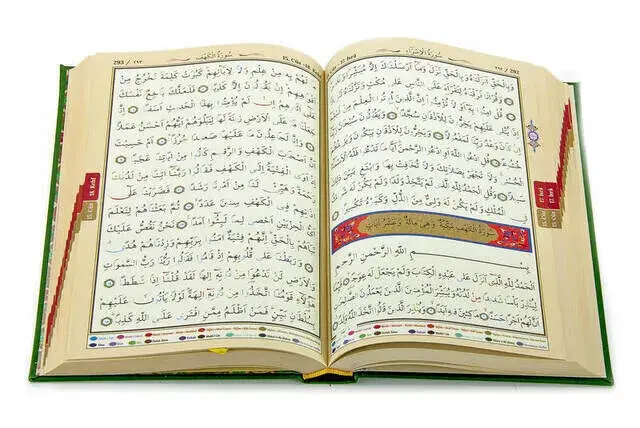 292 / ٢٩٢
سُورَةُ الْاِسْرَاءِ
وَبِالْحَقِّ اَنْزَلْنَاهُ وَبِالْحَقِّ نَزَلَ وَمَا اَرْسَلْنَاكَ اِلَّا مُبَشِّرًا وَنَذِيرًا
وَقُرْاٰنًا فَرَقْنَاهُ لِتَقْرَاَهُ عَلَى النَّاسِ عَلٰى مُكْثٍ وَنَزَّلْنَاهُ تَنْزِيلًا
قُلْ اٰمِنُوا بِهِ اَوْ لَا تُؤْمِنُوا اِنَّ الَّذِينَ اُوتُوا الْعِلْمَ مِنْ قَبْلِهِ
اِذَا يُتْلٰى عَلَيْهِمْ يَخِرُّونَ لِلْاَذْقَانِ سُجَّدًا وَيَقُولُونَ سُبْحَانَ
رَبِّنَا اِنْ كَانَ وَعْدُ رَبِّنَا لَمَفْعُولًا وَيَخِرُّونَ لِلْاَذْقَانِ يَبْكُونَ
وَيَزِيدُهُمْ خُشُوعًا قُلِ ادْعُوا اللّٰهَ اَوِ ادْعُوا الرَّحْمٰنَ اَيًّا مَا تَدْعُوا
فَلَهُ الْاَسْمَاءُ الْحُسْنٰى وَلَا تَجْهَرْ بِصَلَاتِكَ وَلَا تُخَافِتْ بِهَا وَابْتَغِ بَيْنَ ذٰلِكَ
سَبِيلًا وَقُلِ الْحَمْدُ لِلّٰهِ الَّذِي لَمْ يَتَّخِذْ وَلَدًا وَلَمْ يَكُنْ لَهُ شَرِيكٌ فِي
الْمُلْكِ وَلَمْ يَكُنْ لَهُ وَلِيٌّ مِنَ الذُّلِّ وَكَبِّرْهُ تَكْبِيرًا
سُورَةُ الْكَهْفِ مَكِّيَّةٌ وَهِيَ مِائَةٌ وَعَشْرُ اٰيَاتٍ
بِسْمِ اللّٰهِ الرَّحْمٰنِ الرَّحِيمِ
اَلْحَمْدُ لِلّٰهِ الَّذِي اَنْزَلَ عَلٰى عَبْدِهِ الْكِتَابَ وَلَمْ يَجْعَلْ لَهُ عِوَجًا
قَيِّمًا لِيُنْذِرَ بَأْسًا شَدِيدًا مِنْ لَدُنْهُ وَيُبَشِّرَ الْمُؤْمِنِينَ الَّذِينَ يَعْمَلُونَ الصَّالِحَاتِ
اَنَّ لَهُمْ اَجْرًا حَسَنًا مَاكِثِينَ فِيهِ اَبَدًا وَيُنْذِرَ الَّذِينَ قَالُوا اتَّخَذَ اللّٰهُ وَلَدًا
17. İsrâ
15. Cüz
293 / ٢٩٣
سُورَةُ الْكَهْفِ
15. Cüz -18.
مَا لَهُمْ بِهِ مِنْ عِلْمٍ وَلَا لِاٰبَائِهِمْ كَبُرَتْ كَلِمَةً تَخْرُجُ مِنْ
اَفْوَاهِهِمْ اِنْ يَقُولُونَ اِلَّا كَذِبًا فَلَعَلَّكَ بَاخِعٌ نَفْسَكَ
عَلٰى اٰثَارِهِمْ اِنْ لَمْ يُؤْمِنُوا بِهٰذَا الْحَدِيثِ اَسَفًا اِنَّا
جَعَلْنَا مَا عَلَى الْاَرْضِ زِينَةً لَهَا لِنَبْلُوَهُمْ اَيُّهُمْ اَحْسَنُ عَمَلًا
وَاِنَّا لَجَاعِلُونَ مَا عَلَيْهَا صَعِيدًا جُرُزًا اَمْ حَسِبْتَ
اَنَّ اَصْحَابَ الْكَهْفِ وَالرَّقِيمِ كَانُوا مِنْ اٰيَاتِنَا عَجَبًا
اِذْ اَوَى الْفِتْيَةُ اِلَى الْكَهْفِ فَقَالُوا رَبَّنَا اٰتِنَا مِنْ لَدُنْكَ
رَحْمَةً وَهَيِّئْ لَنَا مِنْ اَمْرِنَا رَشَدًا فَضَرَبْنَا عَلٰى
اٰذَانِهِمْ فِي الْكَهْفِ سِنِينَ عَدَدًا ثُمَّ بَعَثْنَاهُمْ لِنَعْلَمَ
اَيُّ الْحِزْبَيْنِ اَحْصٰى لِمَا لَبِثُوا اَمَدًا نَحْنُ نَقُصُّ عَلَيْكَ
نَبَاَهُمْ بِالْحَقِّ اِنَّهُمْ فِتْيَةٌ اٰمَنُوا بِرَبِّهِمْ وَزِدْنَاهُمْ هُدًى
وَرَبَطْنَا عَلٰى قُلُوبِهِمْ اِذْ قَامُوا فَقَالُوا رَبُّنَا رَبُّ السَّمٰوَاتِ
وَالْاَرْضِ لَنْ نَدْعُوَا مِنْ دُونِهِ اِلٰهًا لَقَدْ قُلْنَا اِذًا شَطَطًا
هٰؤُلَاءِ قَوْمُنَا اتَّخَذُوا مِنْ دُونِهِ اٰلِهَةً لَوْلَا يَأْتُونَ عَلَيْهِمْ
بِسُلْطَانٍ بَيِّنٍ فَمَنْ اَظْلَمُ مِمَّنِ افْتَرٰى عَلَى اللّٰهِ كَذِبًا
18. Kehf
15. Cüz